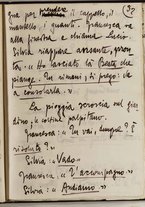 qua per prendere il cappello, il
mantello, i guanti. Francesca va
alla finestra e chiama Lucio.
Silvia riappare ansante, gron-
da. - Ho lasciato là Beata che
piange. Tu rimani, di prego: va
a consolarla. -
La pioggia scroscia sul giar-
dino, a cortine palpitanti.
Francesca: "Tu vai, dunque? È
risoluto?"
Silvia: "Vado."
Francesca: "T'accompagno."
Silvia: "Andiamo."